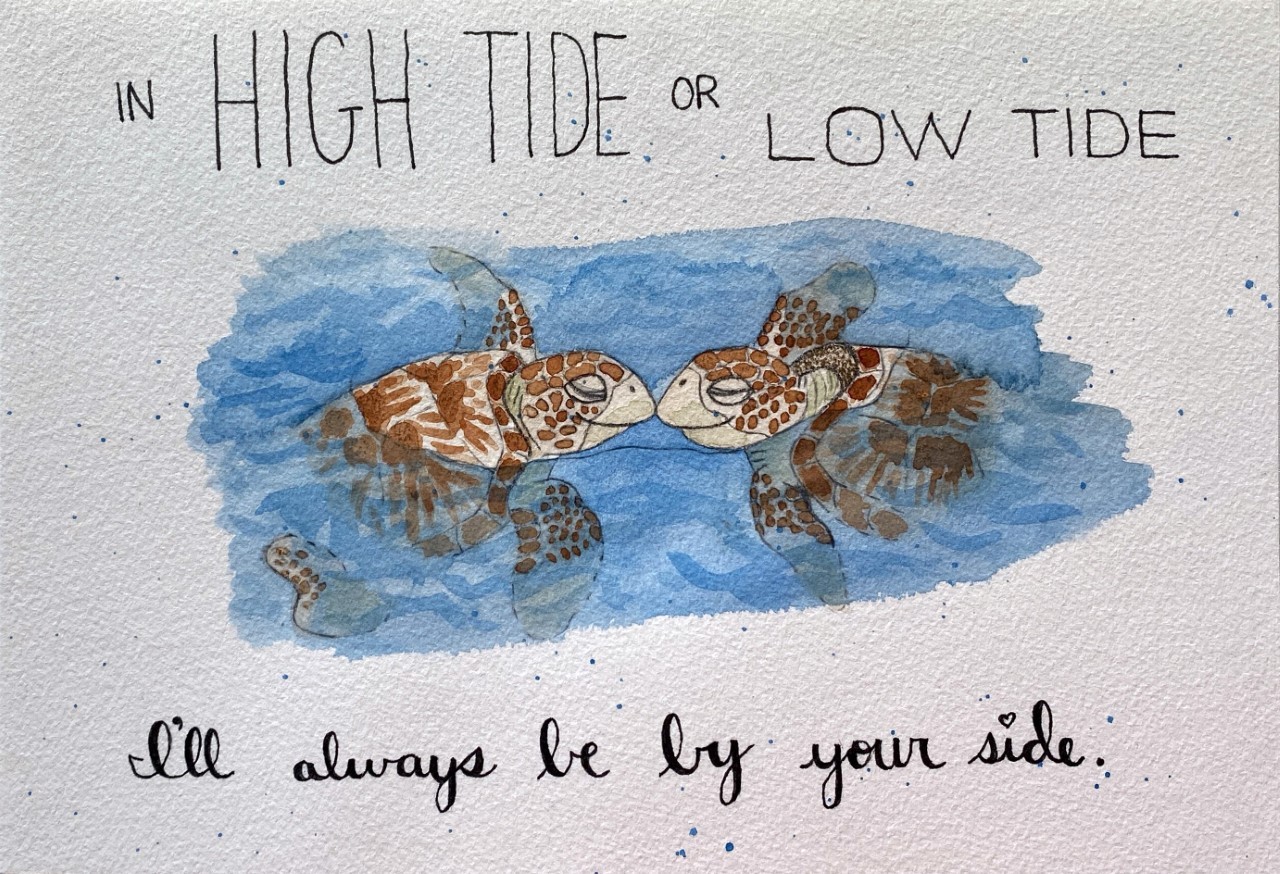 IN HIGH TIDE OR LOW TIDE
I'll always be by your side.